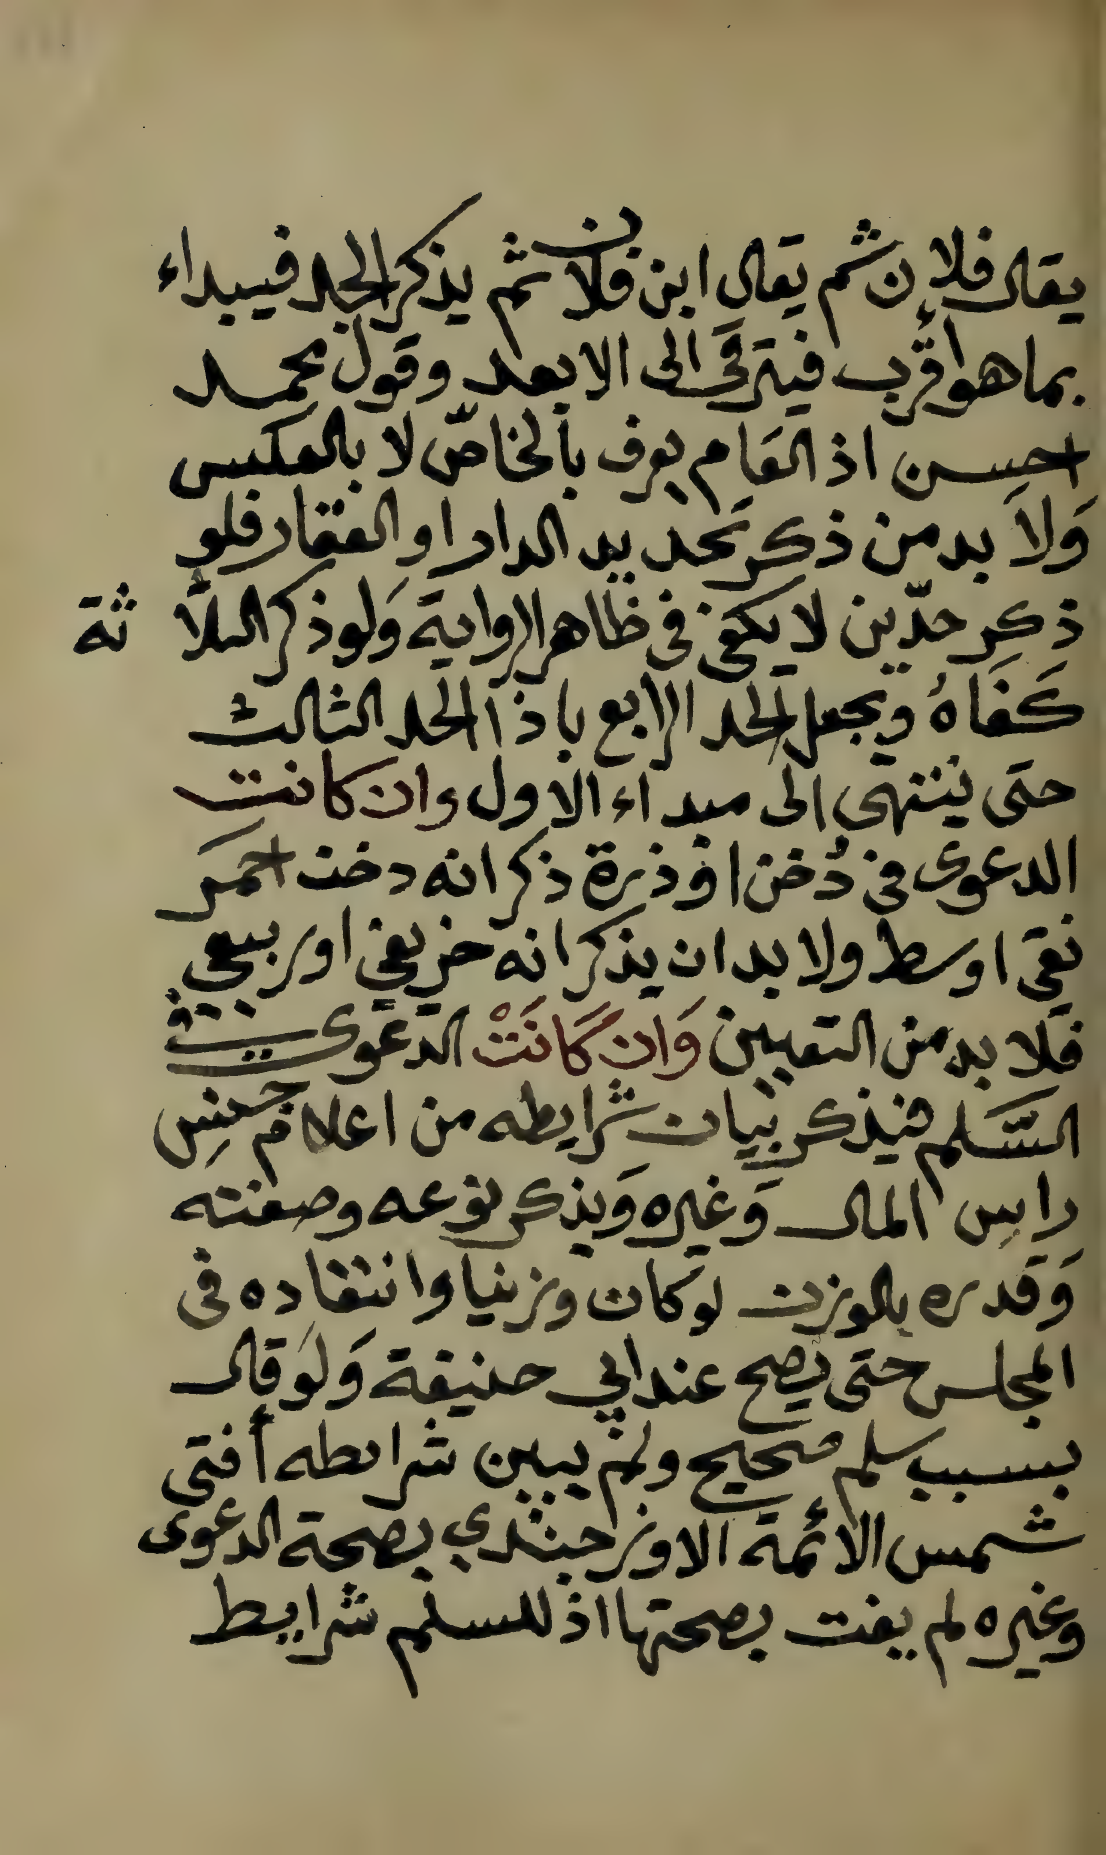 يقال فلان ثم يقال ابن فلان ثم يذكر الجد فيبداء
بما هو أقرب فيترقى الى الابعد وقول محمد
احسن اذ العام يعرف بالخاصّ لا بالعكس
وَلاَ بد من ذكر تحديد الدار او العقار فلو
ذكر حدّين لا يكفى فى ظاهر الرواية وَلو ذكر الثلاثة
كَفَاهُ ويجعل الحد الرابع باذا الحد الثالث
حتى ينتهى الى مبداء الاول وان كانت
الدعوى فى دُخن او ذرة ذكر انه دخن احمَر
نقى اوسط ولا بد ان يذكر انه خريفي او ربيعي
فلا بد من التعيين وَان كَانَتْ الدعوى في
السَّلم فيذكر بيان شرايطه من اعلام جنسِ
راسِ المال وَغيره وَيذكر نوعه وصفته
وَقدره بالوزن لو كان وزنيا وانتقاده فى
المجلس حتى يصح عند ابي حنيفة وَلَو قال
بسبب سلم صحيح ولم يبين شرايطه أفتى
شمس الائمة الاوزجندي بصحة الدعوى
وغيره لم يفت بصحتها اذ للسلم شرايط